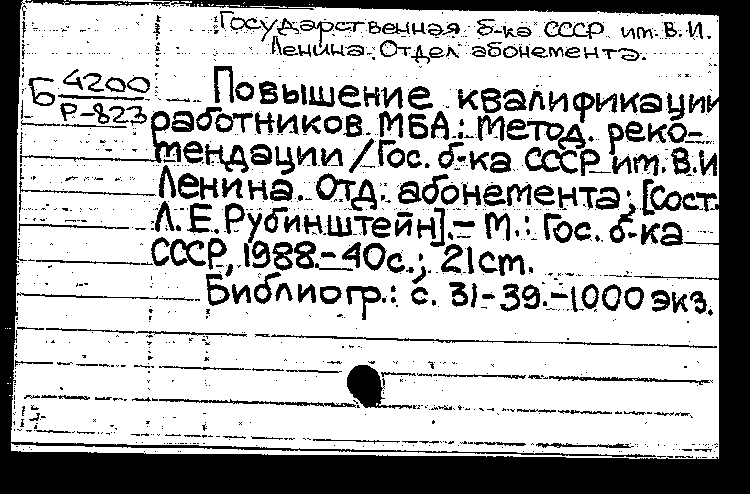 Государственная б-ка СССР им. В. И.
Ленина. Отдел абонемента.
Б 4200
Р-823
Повышение квалификации
работников МБА: Метод. реко-
мендации / Гос. б-ка СССР им. В. И
Ленина. Отд. абонемента; [Сост.
Л. Е. Рубинштейн]. – М.: Гос. б-ка
СССР, 1988. – 40 с.; 21 cm.
Библиогр.: с. 31-39. – 1000 экз.